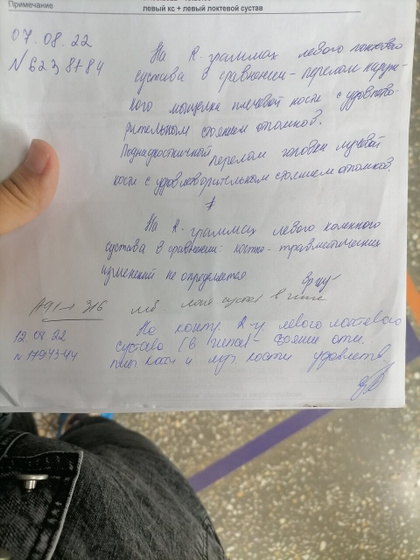 Примечание
левый кс + левый локтевой сустав
07.08.22
N 623 8+84
На R-граммах левого локтевого
сустава в сравнении - перелом наруж-
ного мыщелка плечевой кости с удовлетво-
рительным стоянием отломков?
Поднадкостничный перелом головки лучевой
кости с удовлетворительным стоянием отломков?
На R-граммах левого коленного
сустава в сравнении: костно-травматических
изменений не определяется
в гипсе
12.08.22
На контр R-гр левого локтевого
сустава (в гипсе) - стояние отл.
плеч кости и луч кости удовлетв.